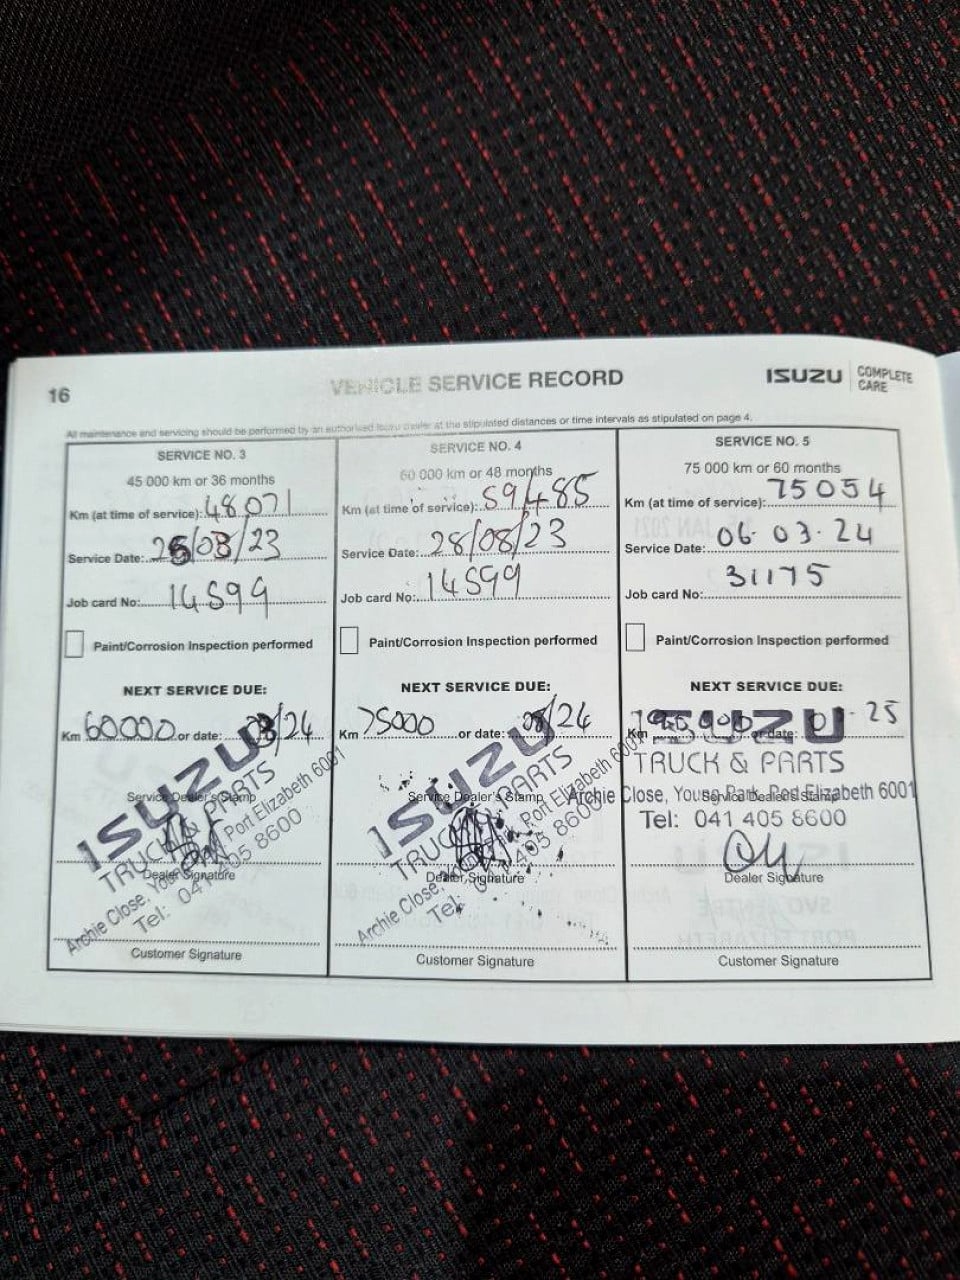 16
VEHICLE SERVICE RECORD
ISUZU
COMPLETE
CARE
All maintenance and servicing should be performed by an authorised Isuzu dealer at the stipulated distances or time intervals as stipulated on page 4.
SERVICE NO. 3
45 000 km or 36 months
Km (at time of service): 48071
Service Date: /03/23
Job card No: 14599
Paint/Corrosion Inspection performed
NEXT SERVICE DUE:
Km 60000 or date: /24
Service Dealer's Stamp
ISUZU
TRUCK & PARTS
Archie Close, Port Elizabeth 6001
Tel: 041 405 8600
Dealer Signature
Customer Signature
SERVICE NO. 4
60 000 km or 48 months
Km (at time of service): 59485
Service Date: 28/08/23
Job card No: 14599
Paint/Corrosion Inspection performed
NEXT SERVICE DUE:
Km 75000 or date: 08/24
Service Dealer's Stamp
ISUZU
TRUCK & PARTS
Archie Close, Port Elizabeth 6001
Tel: 405 8600
Dealer Signature
Customer Signature
SERVICE NO. 5
75 000 km or 60 months
Km (at time of service): 75054
Service Date: 06.03.24
Job card No: 31175
Paint/Corrosion Inspection performed
NEXT SERVICE DUE:
Km or date: 25
ISUZU
TRUCK & PARTS
Service Dealer's Stamp
Archie Close, Young Park, Port Elizabeth 6001
Tel: 041 405 8600
Dealer Signature
Customer Signature